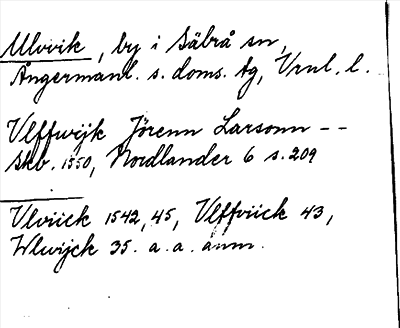 Ulvvik, by i Säbrå sn,
Ångermanl. s. doms. tg, Vrnl. l.
Vlffwijk Jörenn Larsonn --
Skb. 1550, Nordlander 6 s. 209
Vlviick 1542, 45, Vlffviick 43,
Wlwijck 35. a. a. anm.